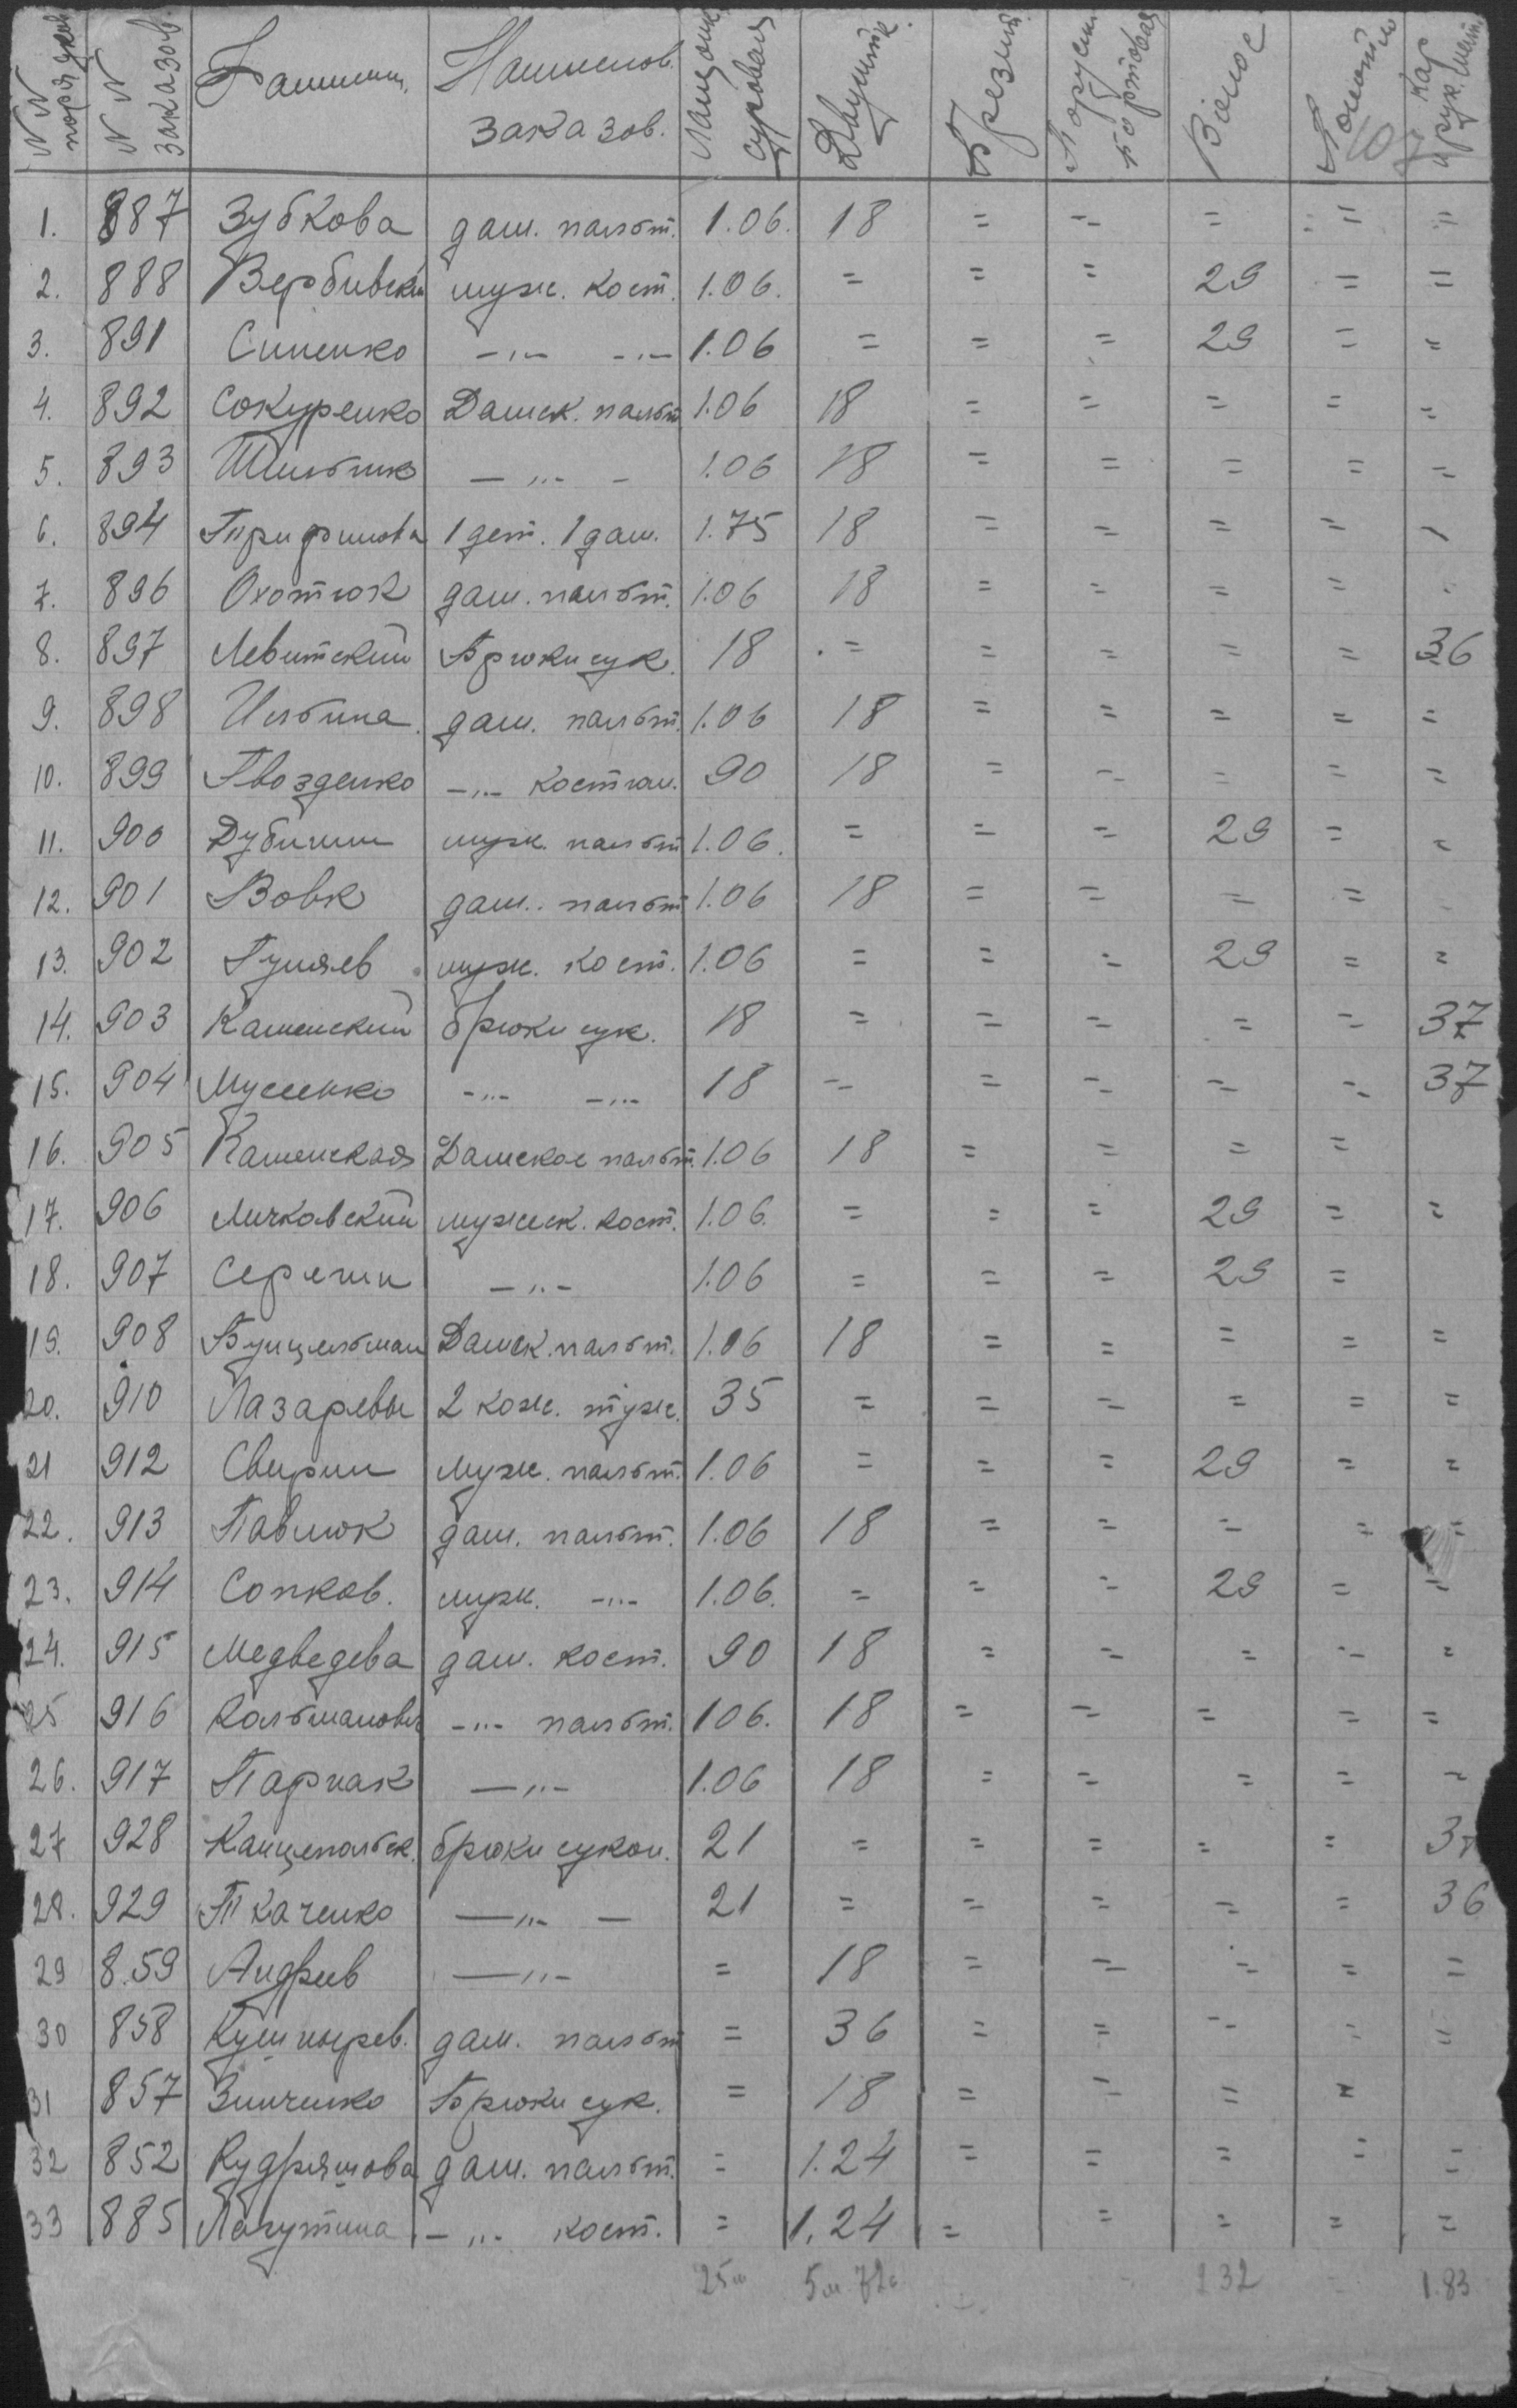 N N поряд. N N заказов. Фамилии Наименов. заказов. суровая Двуник Брезит Парусин. бортовая Волос
1. 887 Зубкова дам. пальт. 1.06. 18 = = = = =
2. 888 Вербивский муж. кост. 1.06. = = = 29 = =
3. 891 Синенко -"- -"- 1.06 = = = 29 = =
4. 892 Сокуренко Дамск. пальт 1.06 18 = = = = =
5. 893 -"- 1.06 18 = = = = =
6. 894 1 дет. 1 дам. 1.75 18 = = = = -
7. 896 Охотюк дам. пальт. 1.06 18 = = = =
8. 897 Левитский Брюки сук. 18 = = = = = 36
9. 898 Ильина дам. пальт. 1.06 18 = = = = =
10. 899 Гвозденко -"- костюм. 90 18 = = = = =
11. 900 Дубинин муж. пальт 1.06. = = = 29 = =
12. 901 Вовк дам. пальт 1.06 18 = = = =
13. 902 Гуляев муж. кост. 1.06 = = = 29 = =
14. 903 Каменский брюки сук. 18 = = = = = 37
15. 904 Мусиенко -"- -"- 18 = = = = = 37
16. 905 Каменская Дамское пальт. 1.06 18 = = = =
17. 906 Личковский мужск. кост. 1.06. = = = 29 = =
18. 907 Серегин -"- 1.06 = = = 29 =
19. 908 Бунцельман Дамск. пальт. 1.06 18 = = = = =
20. 910 Лазаревы 2 кож. туж. 35 = = = = = =
21 912 Свирин Муж. пальт. 1.06 = = = 29 = =
22. 913 Павлюк дам. пальт. 1.06 18 = = = = =
23. 914 Сопков. муж. -"- 1.06. = = = 29 = =
24. 915 Медведева дам. кост. 90 18 = = = = =
25 916 Кольманович -"- пальт. 106. 18 = = = = =
26. 917 Парнак -"- 1.06 18 = = = = =
27 928 Канцепольск. брюки сукон. 21 = = = = =
28. 929 Ткаченко -"- 21 = = = = = 36
29 8.59 Андреев -"- = 18 = = = = =
30 858 Кушнырев. дам. пальт = 36 = = = = =
31 857 Зинченко Брюки сук. = 18 = = = =
32 852 Кудряшова дам. пальт. = 1.24 = = = = =
33 885 Лагутина -"- кост. = 1.24 = = = = =
25м 5м 72с 232 1.83